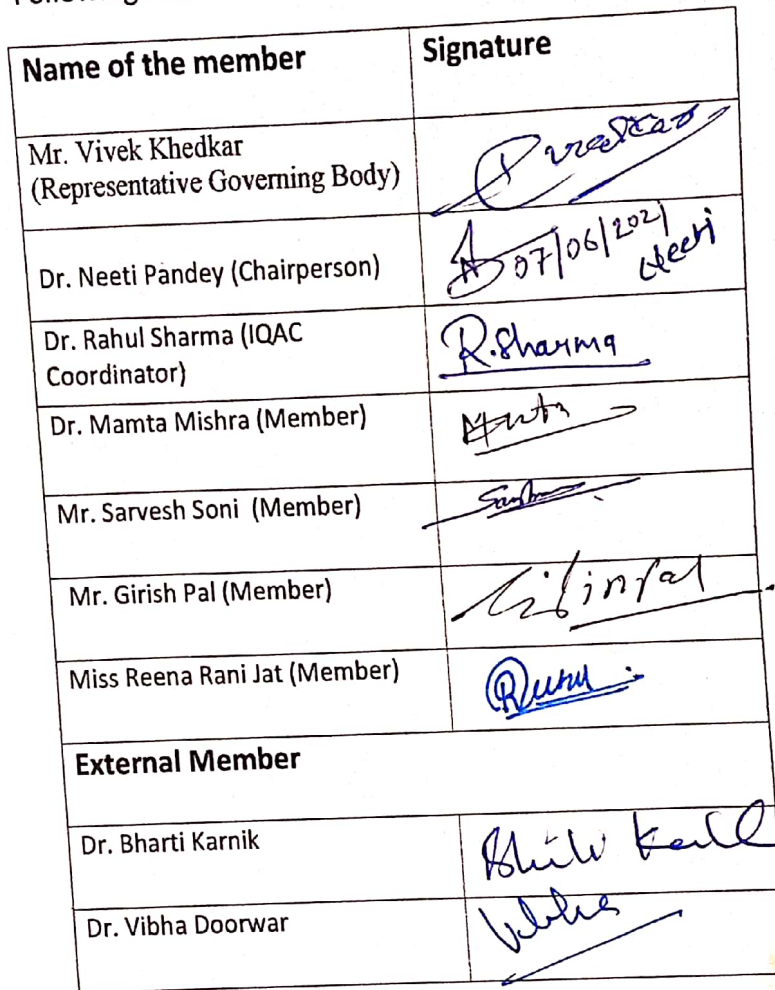 Following
Name of the member Signature
Mr. Vivek Khedkar
(Representative Governing Body)
Dr. Neeti Pandey (Chairperson) 07/06/2021
Neeti
Dr. Rahul Sharma (IQAC R.Sharma
Coordinator)
Dr. Mamta Mishra (Member)
Mr. Sarvesh Soni (Member)
Mr. Girish Pal (Member)
Miss Reena Rani Jat (Member)
External Member
Dr. Bharti Karnik
Dr. Vibha Doorwar Vibha